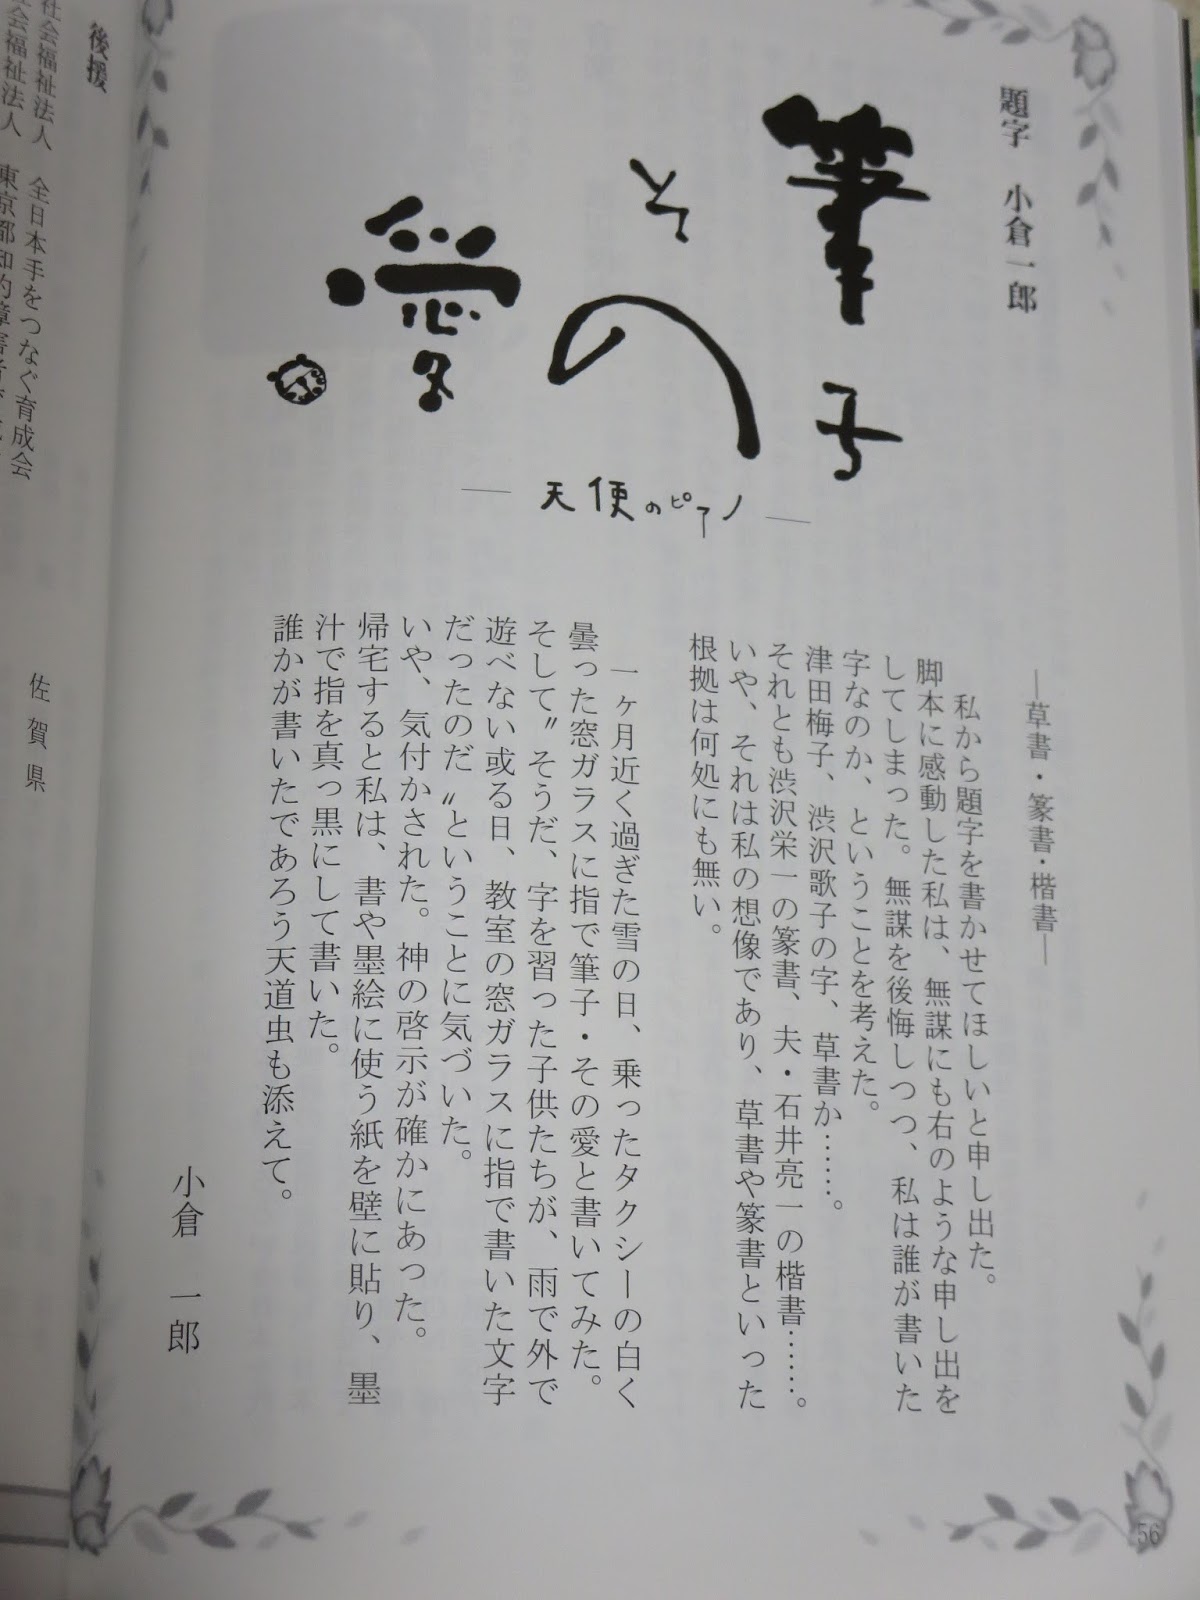 題字　小倉一郎
筆子
その
愛
天使のピアノ
―草書・篆書・楷書―
私から題字を書かせてほしいと申し出た。
脚本に感動した私は、無謀にも右のような申し出を
してしまった。無謀を後悔しつつ、私は誰が書いた
字なのか、ということを考えた。
津田梅子、渋沢歌子の字、草書か……。
それとも渋沢栄一の篆書、夫・石井亮一の楷書……。
いや、それは私の想像であり、草書や篆書といった
根拠は何処にも無い。
一ヶ月近く過ぎた雪の日、乗ったタクシーの白く
曇った窓ガラスに指で筆子・その愛と書いてみた。
そして〝そうだ、字を習った子供たちが、雨で外で
遊べない或る日、教室の窓ガラスに指で書いた文字
だったのだ〟ということに気づいた。
いや、気付かされた。神の啓示が確かにあった。
帰宅すると私は、書や墨絵に使う紙を壁に貼り、墨
汁で指を真っ黒にして書いた。
誰かが書いたであろう天道虫も添えて。
小倉　一郎
56
後援
社会福祉法人　全日本手をつなぐ育成会
社会福祉法人　東京都知的障害者
佐賀県